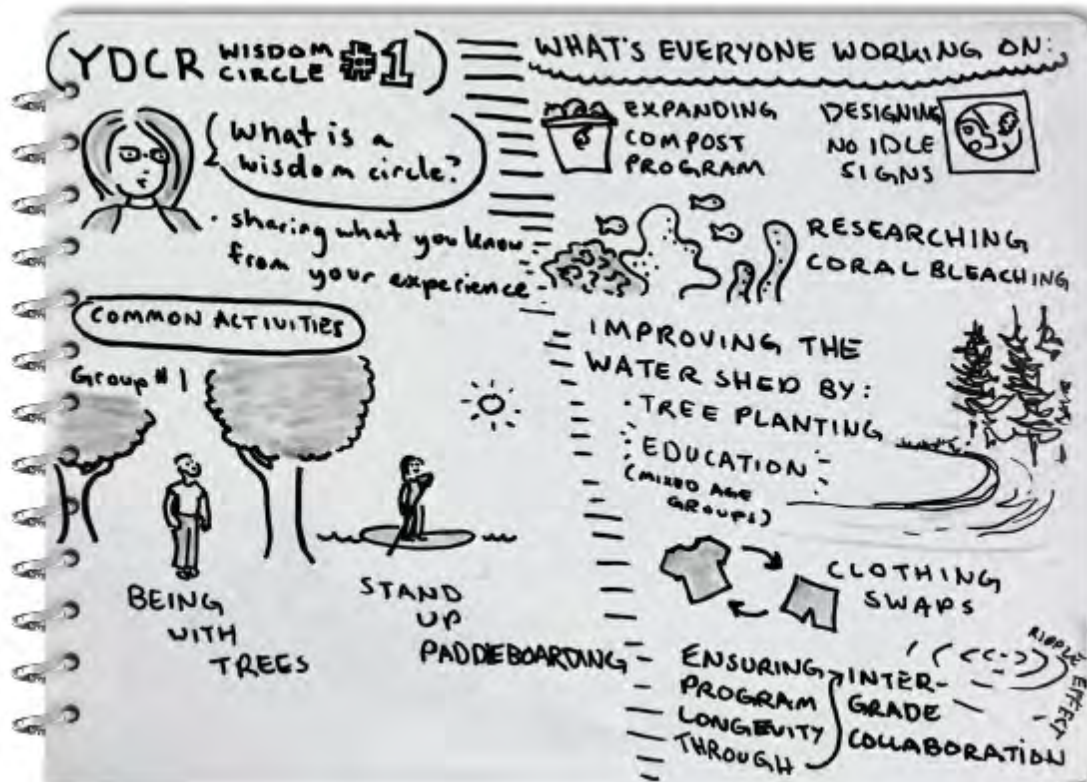 (YDCR WISDOM CIRCLE #1)
What is a
wisdom circle?
· sharing what you know
from your experience
COMMON ACTIVITIES
Group #1
BEING
WITH
TREES
STAND
UP
PADDLEBOARDING
WHAT'S EVERYONE WORKING ON:
EXPANDING
COMPOST
PROGRAM
DESIGNING
NO IDLE
SIGNS
RESEARCHING
CORAL BLEACHING
IMPROVING THE
WATERSHED BY:
· TREE PLANTING
· EDUCATION
(MIXED AGE
GROUPS)
CLOTHING
SWAPS
ENSURING
PROGRAM
LONGEVITY
THROUGH
INTER-
GRADE
COLLABORATION
RIPPLE EFFECT